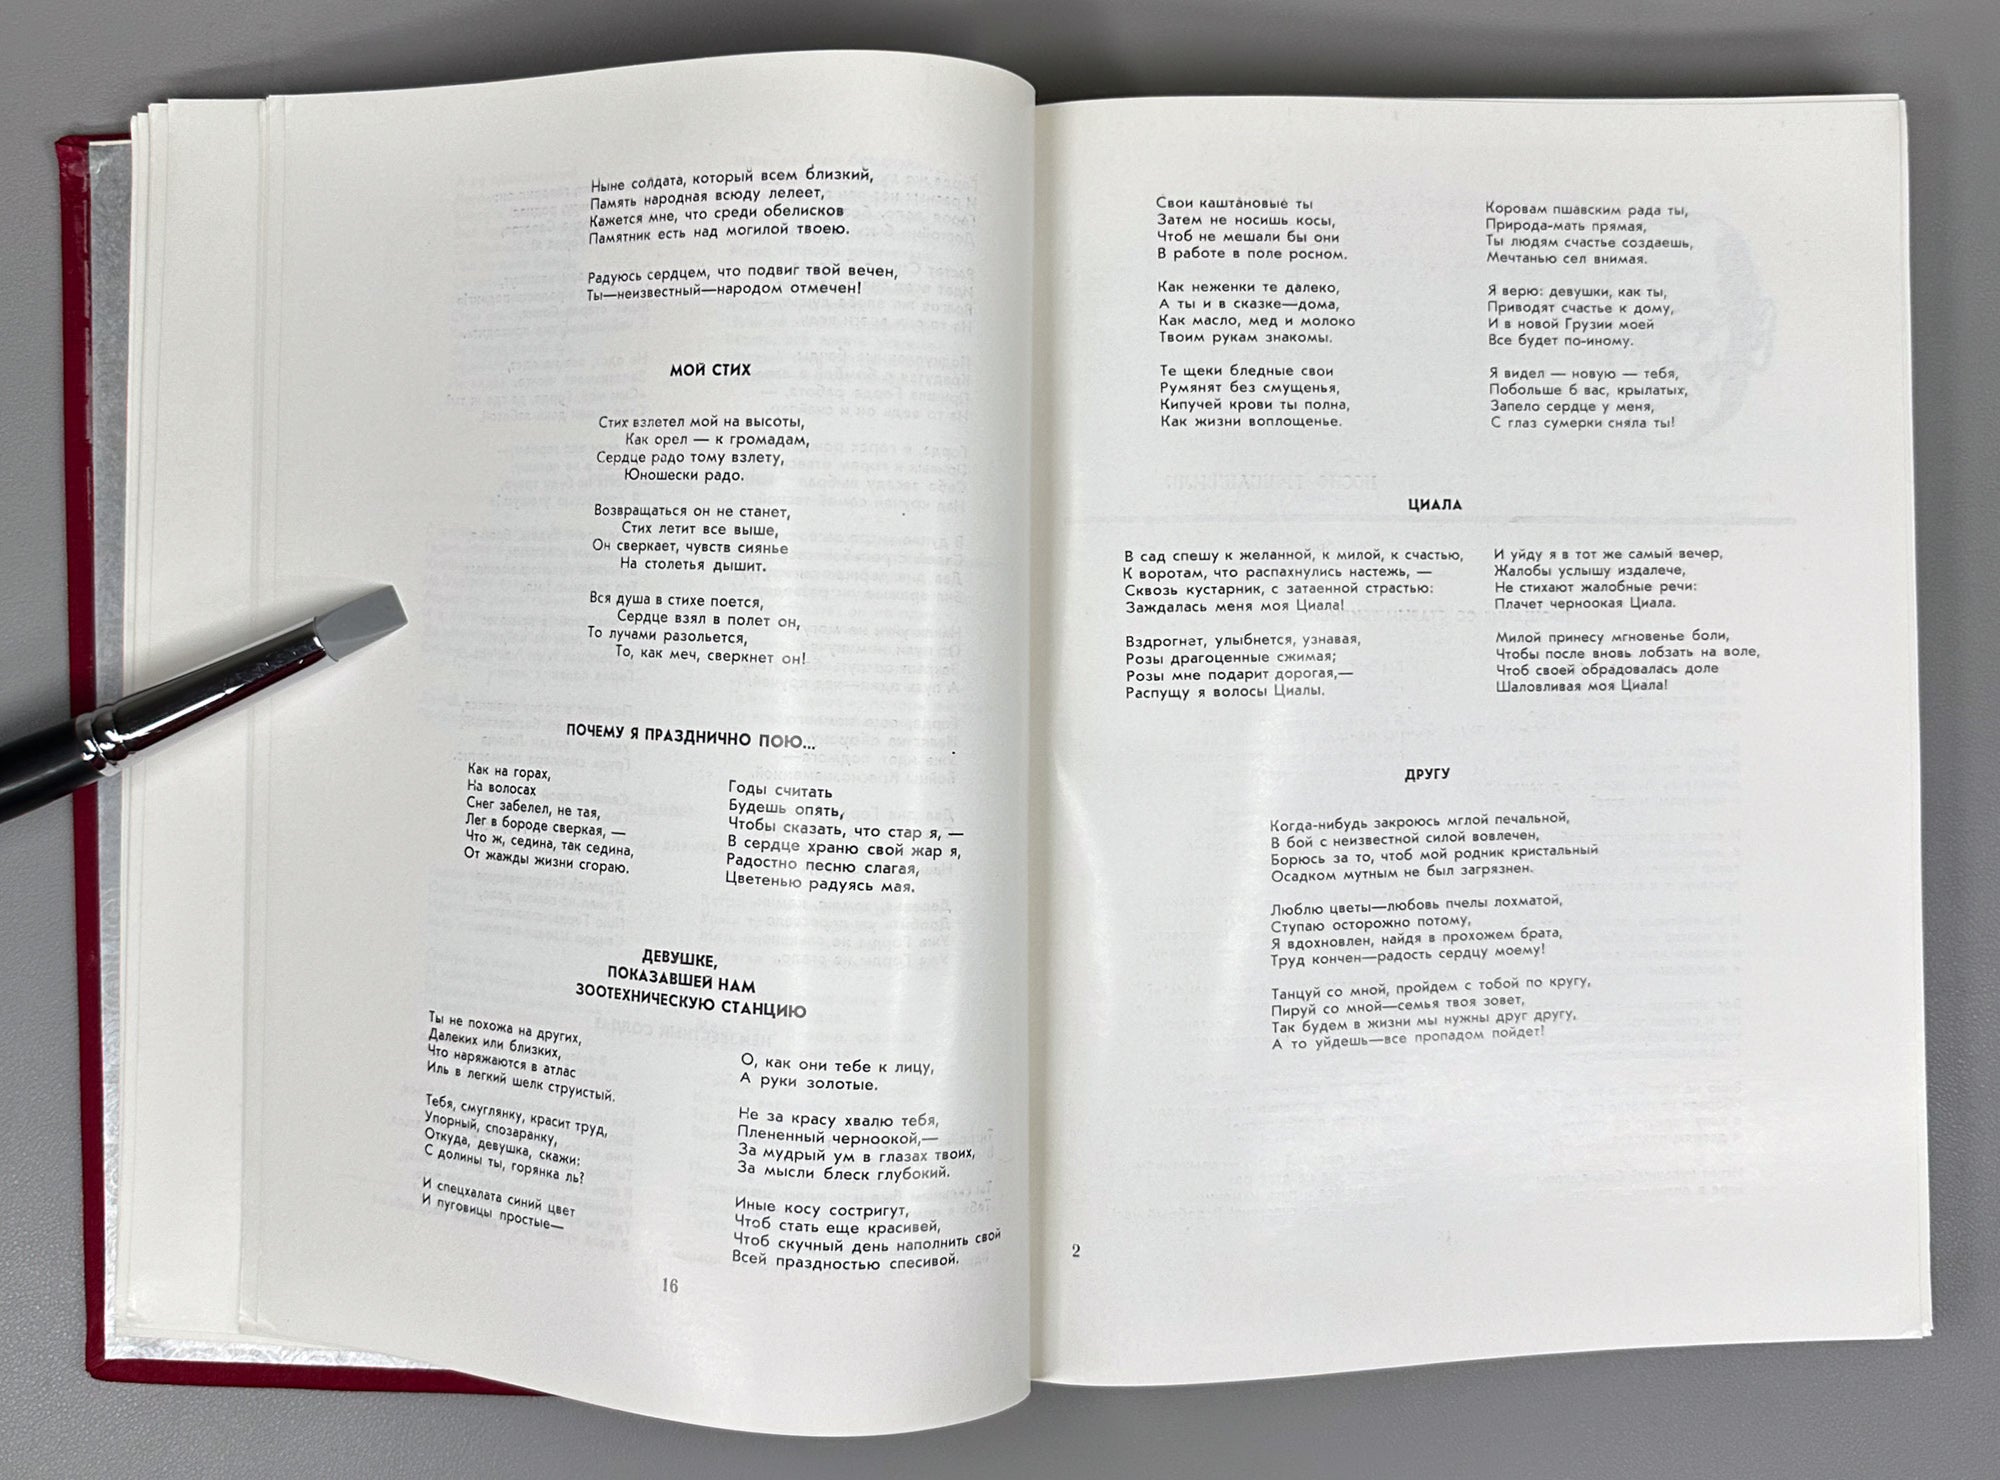 Ныне солдата, который всем близкий,
Память народная всюду лелеет,
Кажется мне, что среди обелисков
Памятник есть над могилой твоею.
Радуюсь сердцем, что подвиг твой вечен,
Ты—неизвестный—народом отмечен!
МОЙ СТИХ
Стих взлетел мой на высоты,
Как орел — к громадам,
Сердце радо тому взлету,
Юношески радо.
Возвращаться он не станет,
Стих летит все выше,
Он сверкает, чувств сиянье
На столетья дышит.
Вся душа в стихе поется,
Сердце взял в полет он,
То лучами разольется,
То, как меч, сверкнет он!
ПОЧЕМУ Я ПРАЗДНИЧНО ПОЮ...
Как на горах,
На волосах
Снег забелел, не тая,
Лег в бороде сверкая, —
Что ж, седина, так седина,
От жажды жизни сгораю.
Годы считать
Будешь опять,
Чтобы сказать, что стар я, —
В сердце храню свой жар я,
Радостно песню слагая,
Цветенью радуясь мая.
ДЕВУШКЕ,
ПОКАЗАВШЕЙ НАМ
ЗООТЕХНИЧЕСКУЮ СТАНЦИЮ
Ты не похожа на других,
Далеких или близких,
Что наряжаются в атлас
Иль в легкий шелк струистый.
Тебя, смуглянку, красит труд,
Упорный, спозаранку,
Откуда, девушка, скажи:
С долины ты, горянка ль?
И спецхалата синий цвет
И пуговицы простые—
О, как они тебе к лицу,
А руки золотые.
Не за красу хвалю тебя,
Плененный черноокой,—
За мудрый ум в глазах твоих,
За мысли блеск глубокий.
Иные косу состригут,
Чтоб стать еще красивей,
Чтоб скучный день наполнить свой
Всей праздностью спесивой.
16
Свои каштановые ты
Затем не носишь косы,
Чтоб не мешали бы они
В работе в поле росном.
Как неженки те далеко,
А ты и в сказке—дома,
Как масло, мед и молоко
Твоим рукам знакомы.
Те щеки бледные свои
Румянят без смущенья,
Кипучей крови ты полна,
Как жизни воплощенье.
Коровам пшавским рада ты,
Природа-мать прямая,
Ты людям счастье создаешь,
Мечтанью сел внимая.
Я верю: девушки, как ты,
Приводят счастье к дому,
И в новой Грузии моей
Все будет по-иному.
Я видел — новую — тебя,
Побольше б вас, крылатых,
Запело сердце у меня,
С глаз сумерки сняла ты!
ЦИАЛА
В сад спешу к желанной, к милой, к счастью,
К воротам, что распахнулись настежь, —
Сквозь кустарник, с затаенной страстью:
Заждалась меня моя Циала!
Вздрогнет, улыбнется, узнавая,
Розы драгоценные сжимая;
Розы мне подарит дорогая,—
Распущу я волосы Циалы.
И уйду я в тот же самый вечер,
Жалобы услышу издалече,
Не стихают жалобные речи:
Плачет черноокая Циала.
Милой принесу мгновенье боли,
Чтобы после вновь лобзать на воле,
Чтоб своей обрадовалась доле
Шаловливая моя Циала!
ДРУГУ
Когда-нибудь закроюсь мглой печальной,
В бой с неизвестной силой вовлечен,
Борюсь за то, чтоб мой родник кристальный
Осадком мутным не был загрязнен.
Люблю цветы—любовь пчелы лохматой,
Ступаю осторожно потому,
Я вдохновлен, найдя в прохожем брата,
Труд кончен—радость сердцу моему!
Танцуй со мной, пройдем с тобой по кругу,
Пируй со мной—семья твоя зовет,
Так будем в жизни мы нужны друг другу,
А то уйдешь—все пропадом пойдет!
2